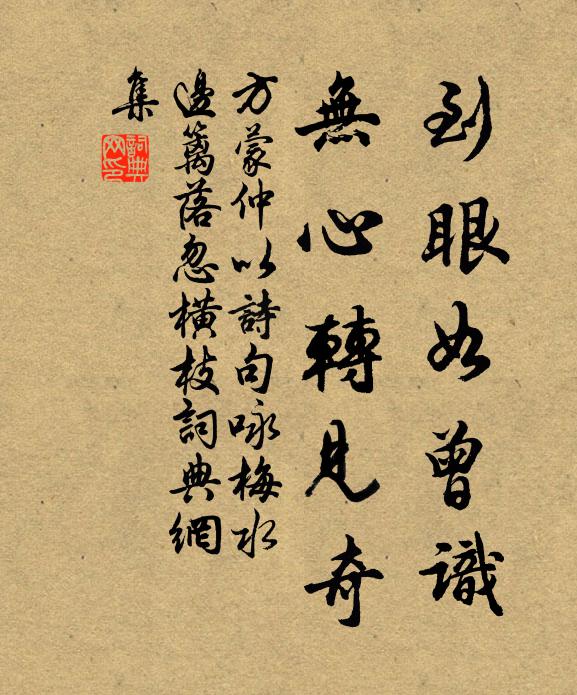 到眼如曾識
無心轉見奇
方蒙仲以詩句咏梅水
邊籬落忽橫枝詞典網
集
詞典網印